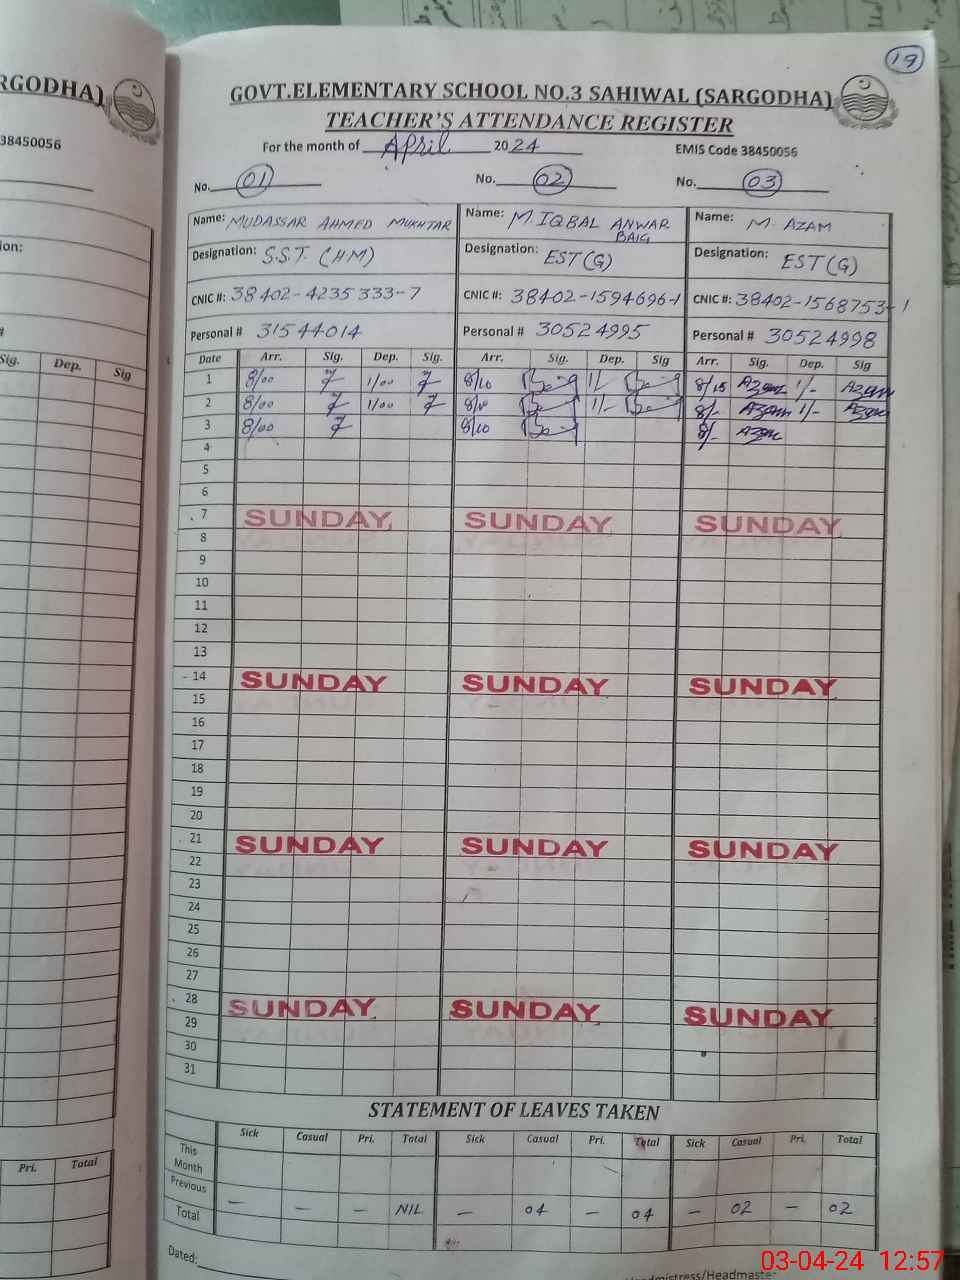 19
RGODHA)
GOVT.ELEMENTARY SCHOOL NO.3 SAHIWAL (SARGODHA)
TEACHER'S ATTENDANCE REGISTER
38450056
For the month of April 2024 EMIS Code 38450056
No. 01 No. 02 No. 03
Name: MUDASSAR AHMED MUKHTAR Name: M. IQBAL ANWAR BAIG Name: M. AZAM
Designation: S.S.T. (HM) Designation: EST(G) Designation: EST(G)
CNIC #: 38402-4235333-7 CNIC #: 38402-1594696-1 CNIC #: 38402-1568753-1
Personal # 31544014 Personal # 30524995 Personal # 30524998
Sig. Dep. Sig
Date Arr. Sig. Dep. Sig. Arr. Sig. Dep. Sig Arr. Sig. Dep. Sig
1 8/00 1/00 8/10 1/- 8/15 Azam 1/- Azam
2 8/00 1/00 1/- 8/- Azam 1/- Azam
3 8/00 8/10 8/- Azam
4
5
6
7 SUNDAY SUNDAY SUNDAY
8
9
10
11
12
13
14 SUNDAY SUNDAY SUNDAY
15
16
17
18
19
20
21 SUNDAY SUNDAY SUNDAY
22
23
24
25
26
27
28 SUNDAY SUNDAY SUNDAY
29
30
31
STATEMENT OF LEAVES TAKEN
Pri. Total
Sick Casual Pri. Total Sick Casual Pri. Total Sick Casual Pri. Total
This Month
Previous
Total — — — NIL — 04 — 04 — 02 — 02
Dated:
Headmistress/Headmaster
03-04-24 12:57